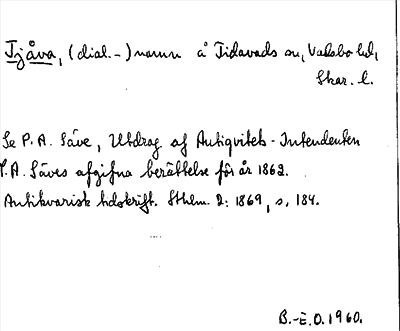 Tjåva, (dial.-) namn å Tidavads sn, Vadsbo hd,
Skar. l.
Se P. A. Säve, Utdrag af Antiqvitets-Intendenten
P. A. Säves afgifna berättelse för år 1862.
Antikvarisk tidskrift. Sthlm. 2: 1869, s. 184.
B.-E.O. 1960.